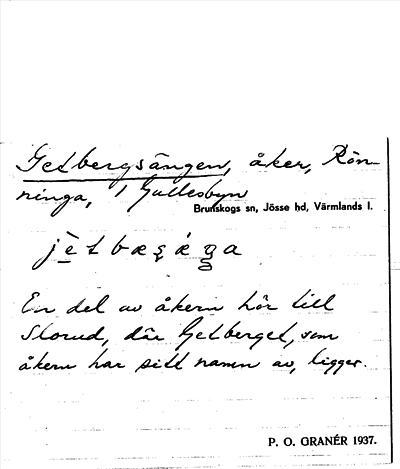 Getbergsängen, åker, Rön-
ninga, 1 Gullesbyn
Brunskogs sn, Jösse hd, Värmlands l.
En del av åkern hör till
Slorud, där Getberget, som
åkern har sitt namn av, ligger.
P. O. GRANÉR 1937.